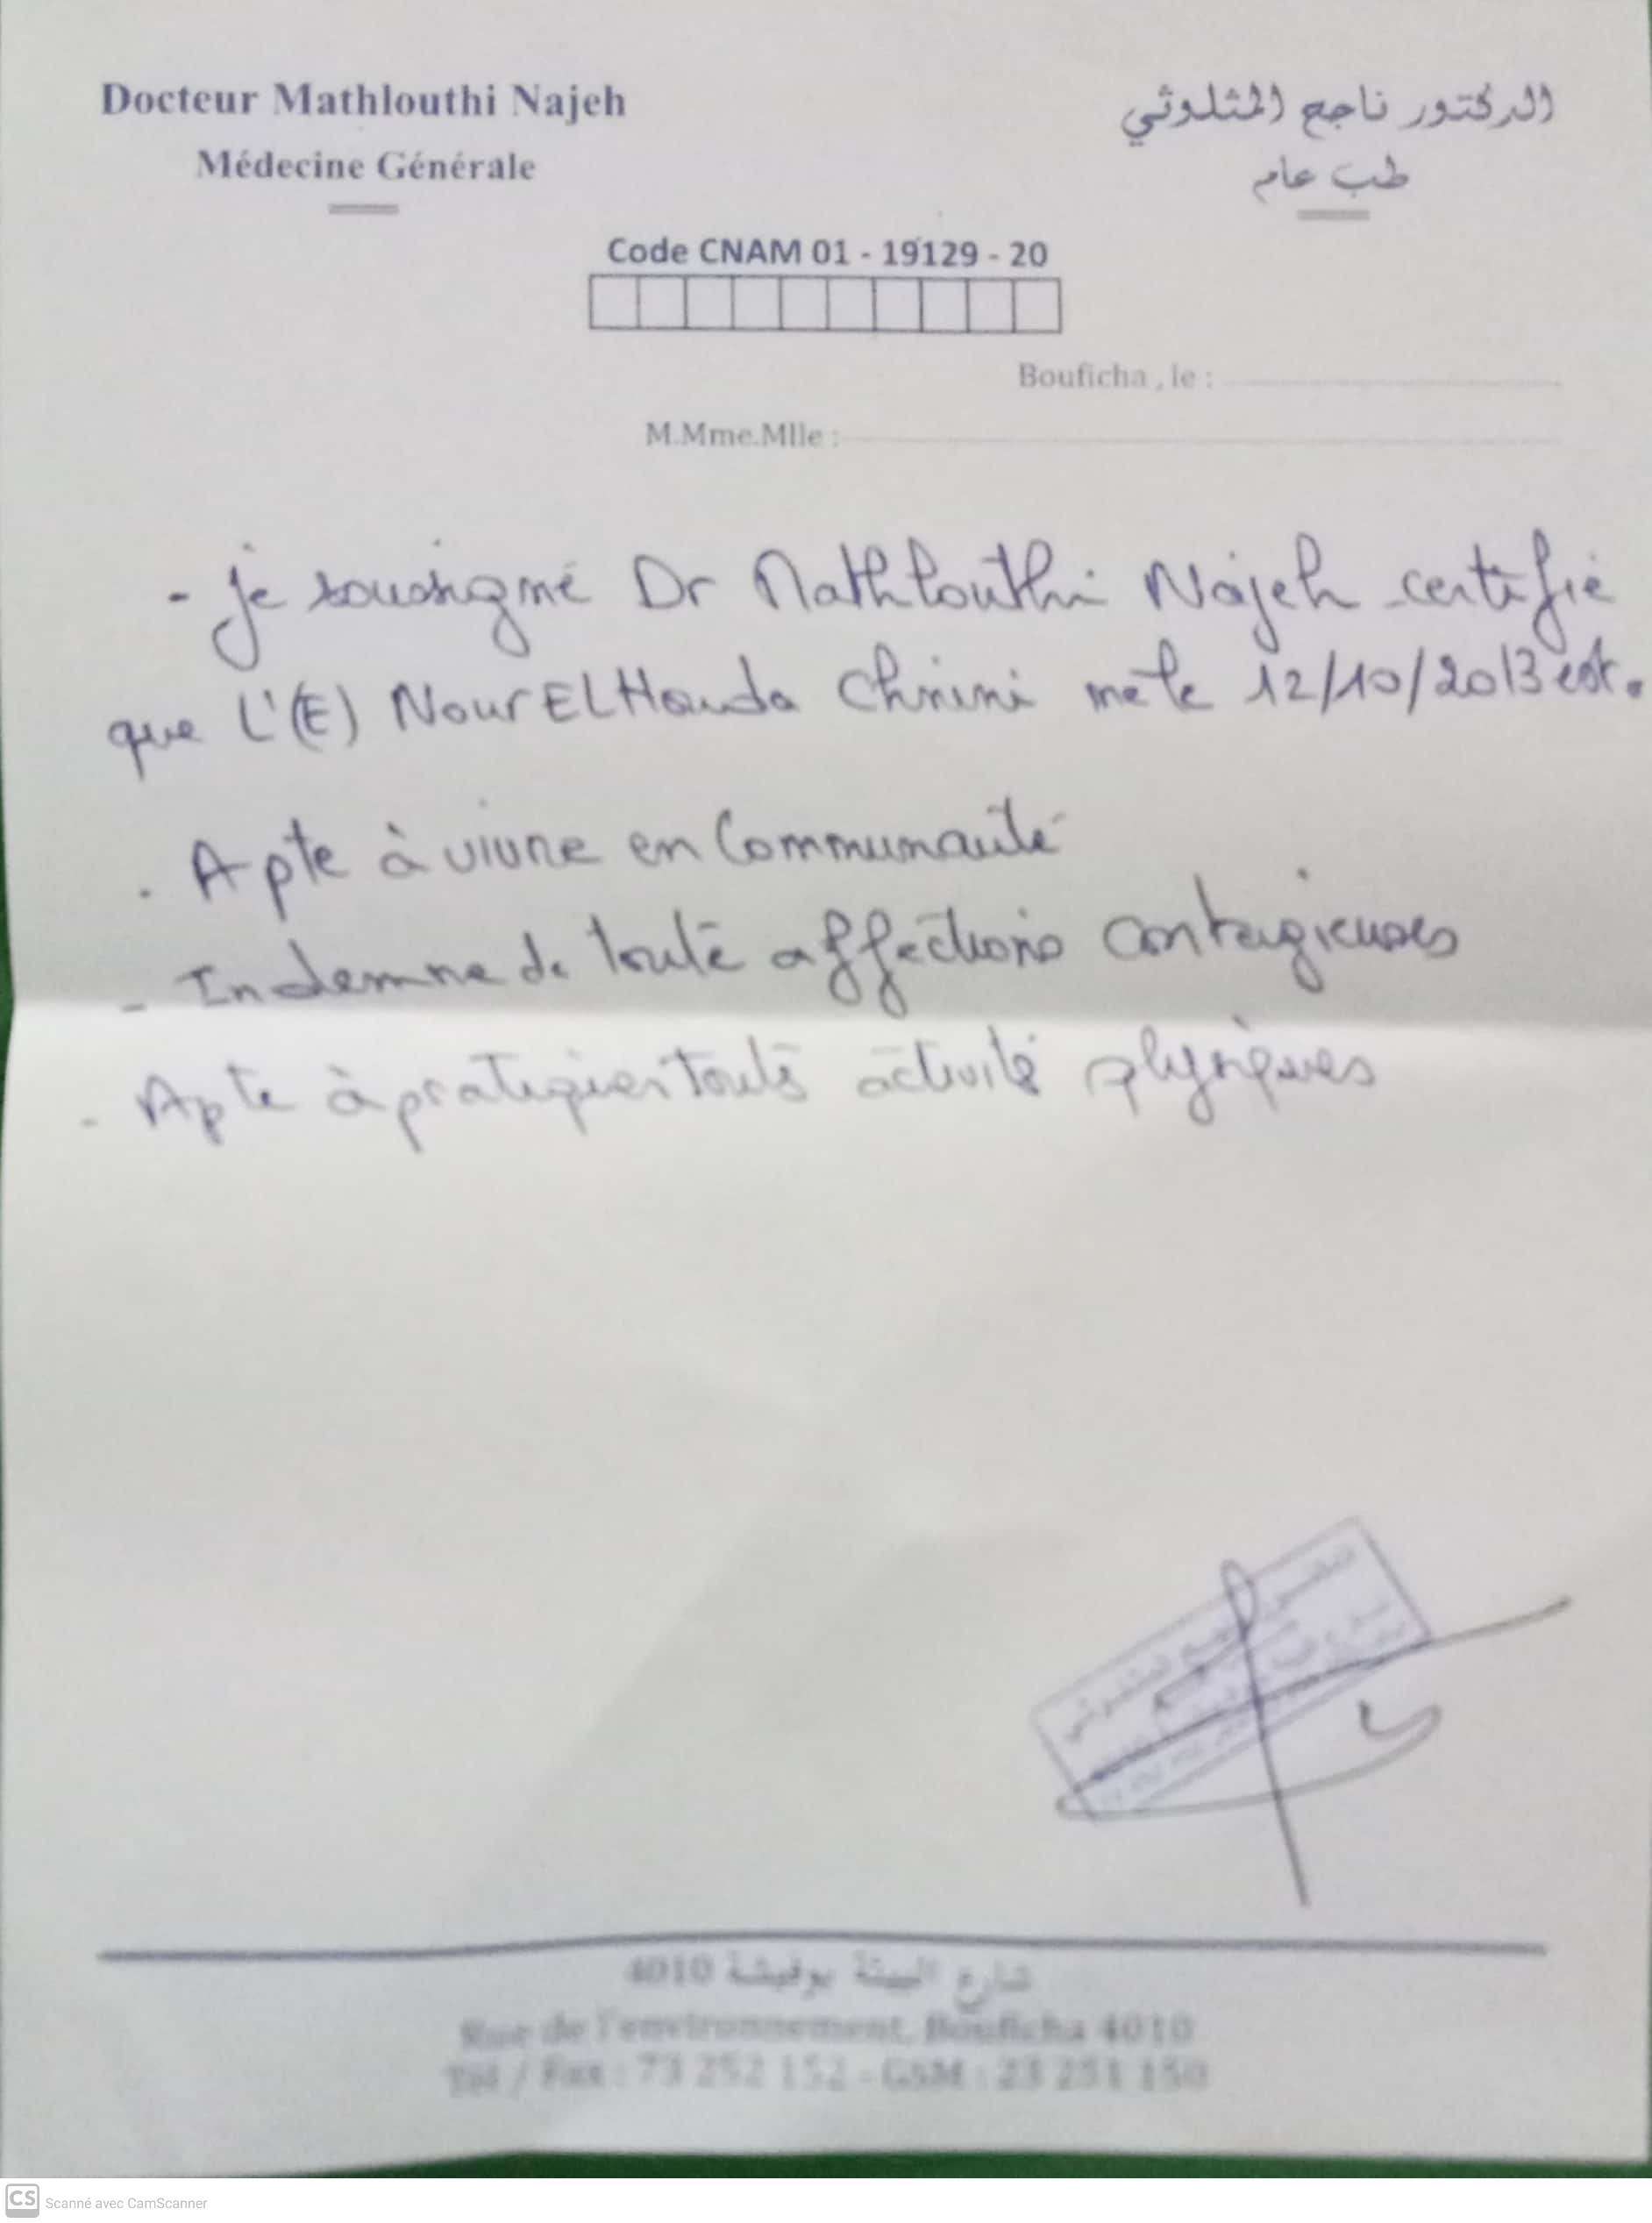 Docteur Mathlouthi Najeh
Médecine Générale
الدكتور ناجح المثلوثي
طب عام
Code CNAM 01 - 19129 - 20
Bouficha , le :
M.Mme.Mlle :
- Je soussigné Dr Mathlouthi Najeh certifie
que L'(E) Nour EL Houda Chnini née le 12/10/2013 est.
. Apte à vivre en Communauté
- Indemne de toute affections contagieuses
- Apte à pratiquer toute activité physiques
شارع البيئة بوفيشة 4010
Rue de l'environnement, Bouficha 4010
Tél / Fax : 73 252 152 - GSM : 23 251 150
CS Scanné avec CamScanner